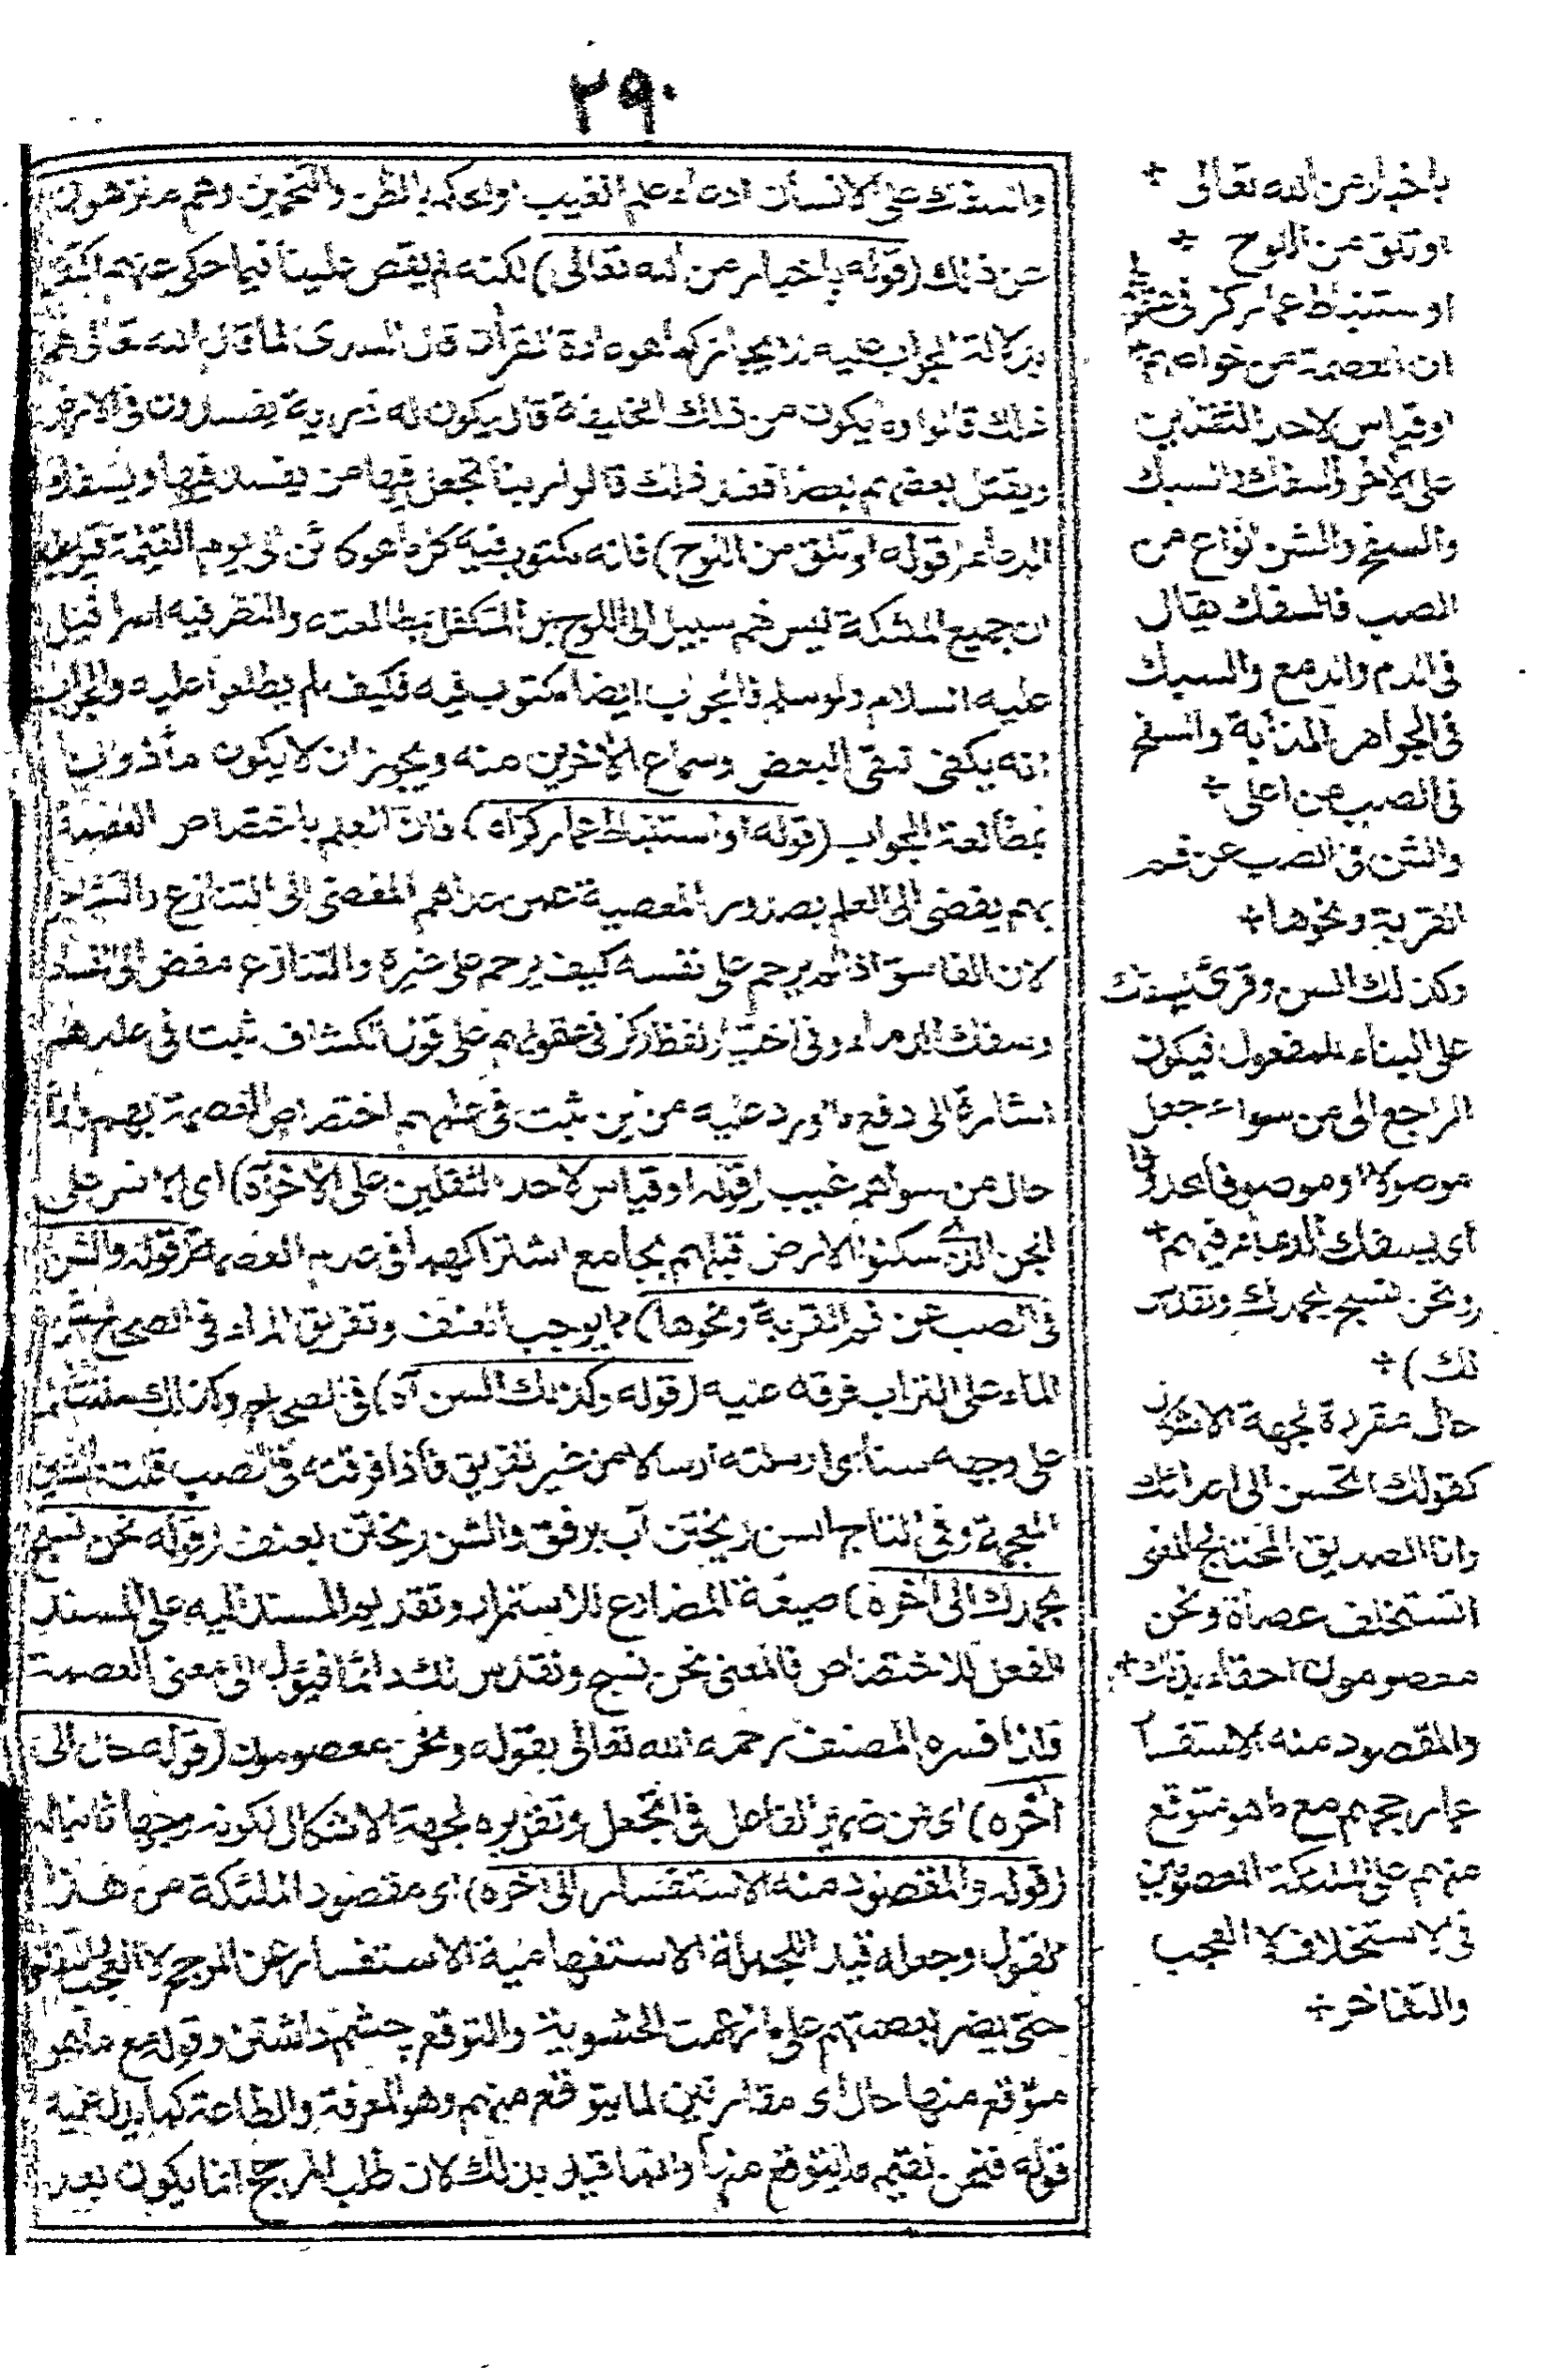 ٢٩٠
والسفك على الانسان ادعاء علم الغيب او الحكم بالظن والتخمين وهم منزهون
عن ذلك (قوله باخبار من الله تعالى) لكنه لم يقص علينا فيما حكى عنهم اكتفاء
بدلالة الجواب عليه للايجاز كما هو عادة القرأن قال السدى لما قال الله تعالى لهم
ذلك قالوا وما يكون من ذلك الخليفة قال يكون له ذرية يفسدون فى الارض
ويقتل بعضهم بعضا فعند ذلك قالوا ربنا أتجعل فيها من يفسد فيها ويسفك
الدماء (قوله او تلق من اللوح) فانه مكتوب فيه كل ما هو كائن الى يوم القيمة
ان جميع الملئكة ليس لهم سبيل الى اللوح بل المتكفل بمطالعته والنظر فيه اسرافيل
عليه السلام ولو سلم فالجواب ايضا مكتوب فيه فكيف لم يطلعوا عليه والجواب
انه يكفى تلقى البعض وسماع الأخرين منه ويجوز ان لا يكون مأذونا
بمطالعة الجواب (قوله او استنباط عما ركز اه) فان العلم باختصاص العصمة
بهم يفضى الى العلم بصدور المعصية عمن عداهم المفضى الى التنازع والتشاجر
لان الفاسق اذا لم يرحم على نفسه كيف يرحم على غيره والتنازع مفض الى الفساد
وسفك الدماء وفى اختيار لفظ ركز فى عقولهم على قول الكشاف ثبت فى علمهم
اشارة الى دفع ما اورد عليه من اين ثبت فى علمهم اختصاص العصمة بهم وانما
حال من سواهم غيب (قوله او قياس لاحد الثقلين على الأخر آه) اى الانس على
الجن الذين سكنوا الارض قبلهم بجامع اشتراكهما فى عدم العصمة (قوله والشن
فى الصب عن فم القربة ونحوها) مما يوجب العنف وتفريق الماء فى الصحاح شن
الماء على التراب فرقه عليه (قوله وكذلك السن آه) فى الصحاح وكذلك سننت الماء
على وجهه سنا اى ارسلته ارسالا من غير تفريق فاذا فرقته فى الصب قلت بالشين
المعجمة وفى التاج السن ريختن آب برفق والشن ريختن بعنف (قوله نحن نسبح
بحمدك الى أخره) صيغة المضارع للاستمرار وتقديم المسند اليه على المسند
الفعل للاختصاص فالمعنى نحن نسبح ونقدس لك دائما فيؤل الى معنى العصمة
فلذا فسره المصنف رحمه الله تعالى بقوله ونحن معصومون (قوله حال الى
أخره) اى من ضمير الفاعل فى اتجعل وتقريره لجهة الاشكال لكونه وجها ثانيا له
(قوله والمقصود منه الاستفسار الى أخره) اى مقصود الملئكة من هذا
القول وجعله قيد اللجملة الاستفهامية الاستفسار عن المرجح لا العجب والتفاخر
حتى يضر بعصمتهم على ما زعمت الحشوية والتوقع چشم داشتن وقوله مع ما هو
متوقع منها حال اى مقارنين لما يتوقع منهم وهو المعرفة والطاعة كما يدل عليه
قوله فنحن نقيم ما يتوقع منها وانما قيد بذلك لان طلب المرجح انما يكون بعد
باخبار من الله تعالى +
او تلق من اللوح +
او ستنباط عما ركز فى عقولهم
ان العصمة من خواصهم +
او قياس لاحد الثقلين
على الأخر والسفك والسبك
والسفح والشن انواع من
الصب فالسفك يقال
فى الدم والدمع والسبك
فى الجواهر المذابة والسفح
فى الصب من اعلى +
والشن فى الصب عن فم
القربة ونحوها +
وكذلك السن وقرئ يسفك
على البناء للمفعول فيكون
الراجع الى من سواء جعل
موصولا او موصوفا محذوفا
اى يسفك الدماء فيهم +
(ونحن نسبح بحمدك ونقدس
لك) +
حال مقررة لجهة الاشكال
كقولك اتحسن الى اعدائك
وانا الصديق المحتاج المعنى
اتستخلف عصاة ونحن
معصومون احقاء بذلك +
والمقصود منه الاستفسار
عما رجحهم مع ما هو متوقع
منهم على الملئكة المعصومين
فى الاستخلاف لا العجب
والتفاخر +